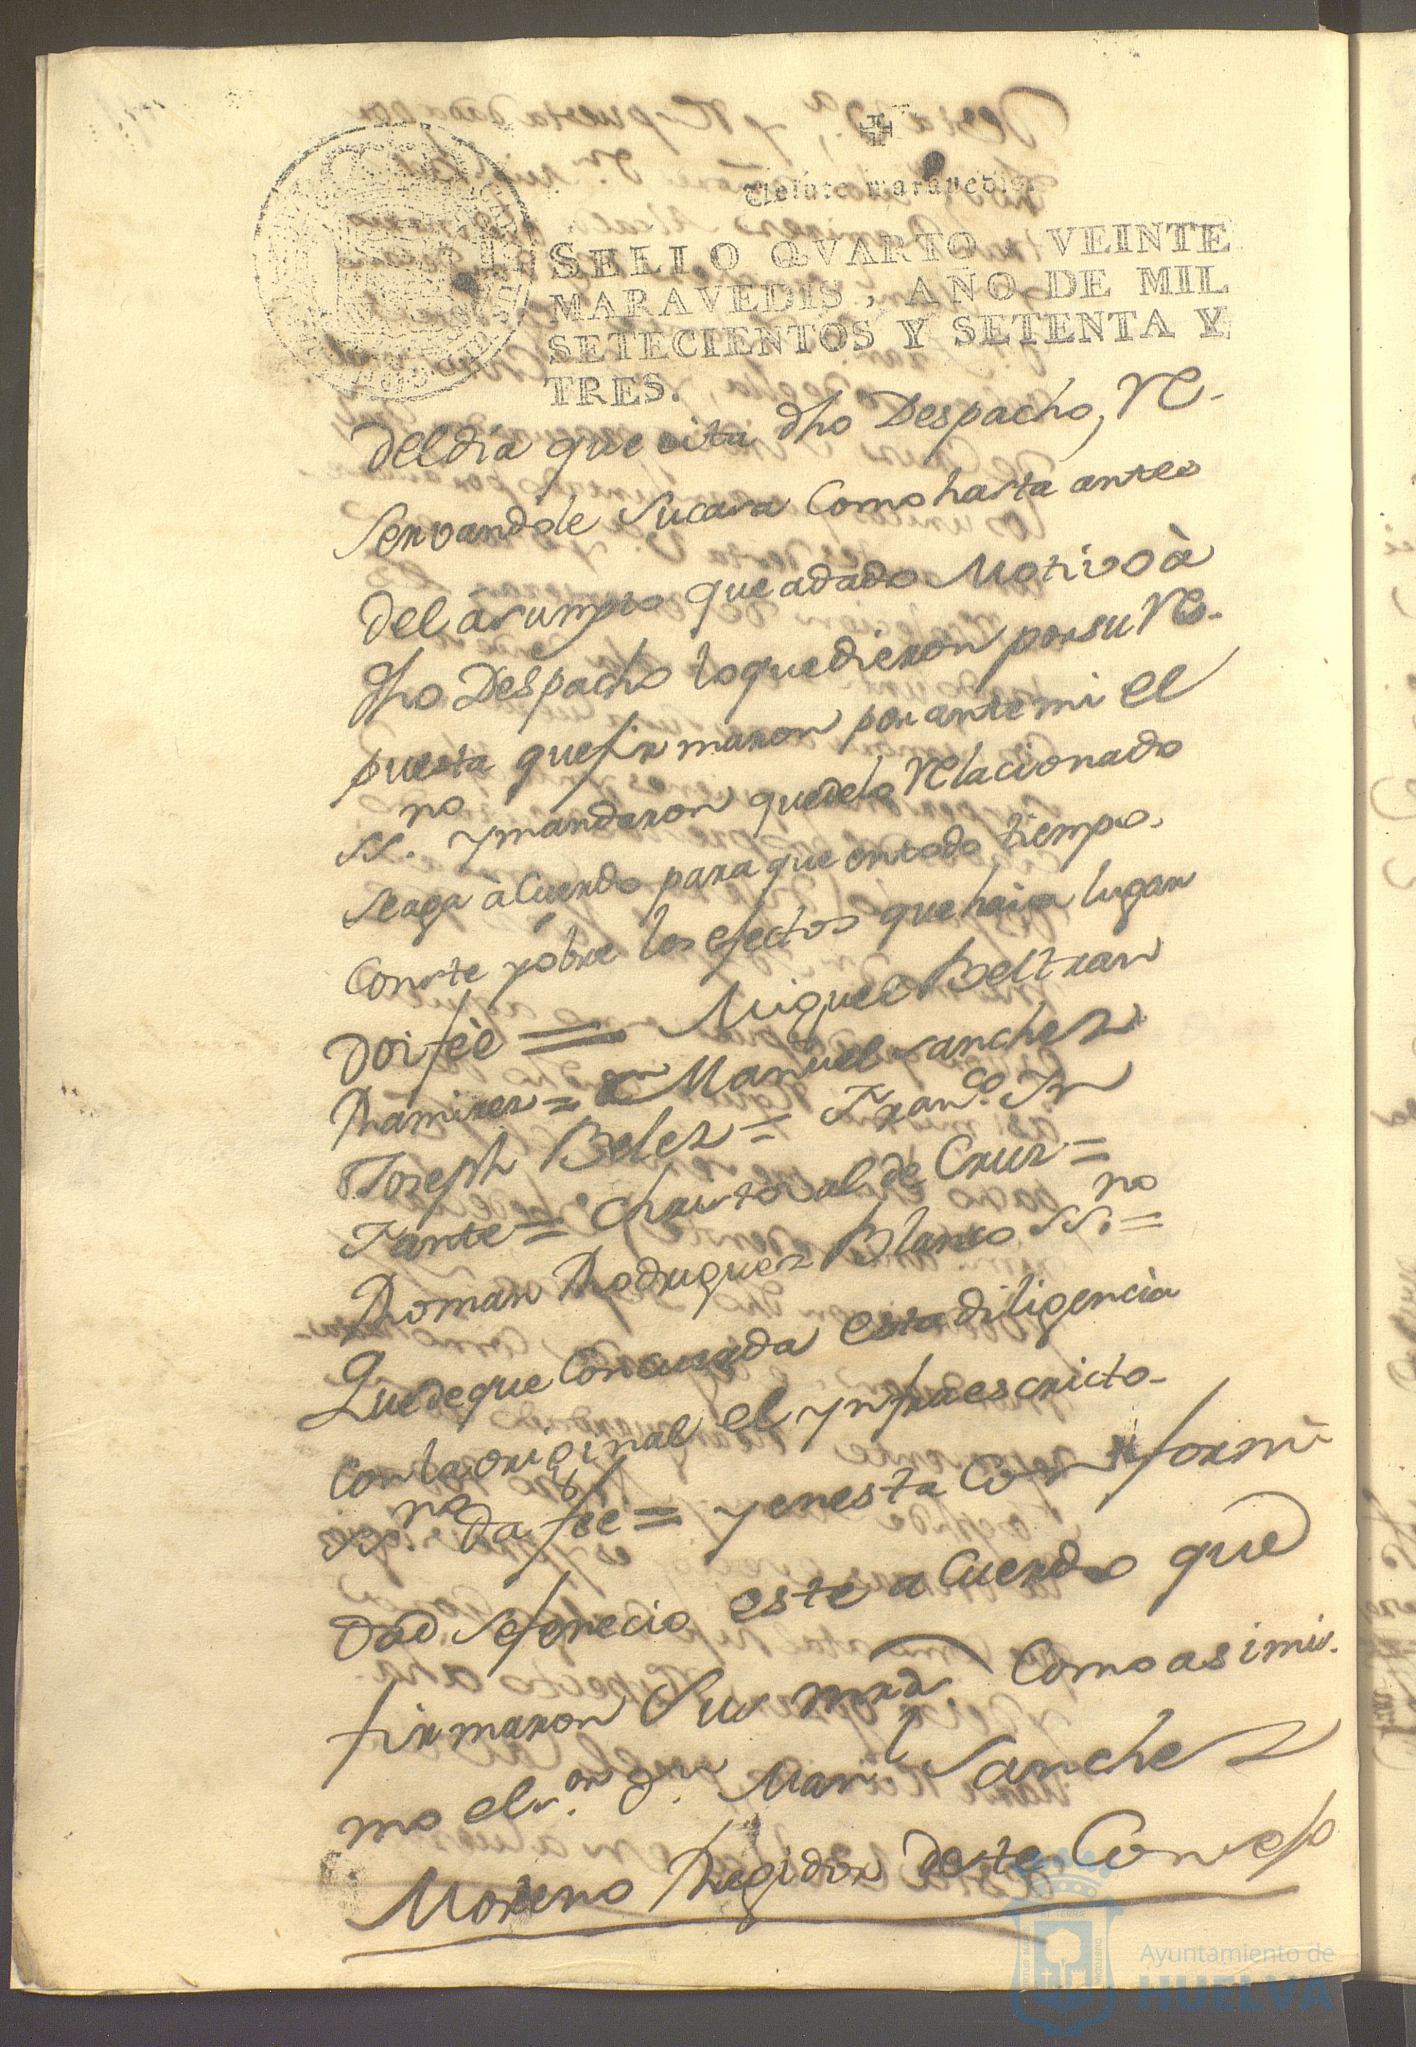 Veinte maravedis.
SELLO QVARTO, VEINTE
MARAVEDIS, AÑO DE MIL
SETECIENTOS Y SETENTA Y
TRES.
del dia que cita dho Despacho, Re-
servandole su casa Como hasta antes
del asumpto que adado Motivo à
dho Despacho lo que dieron por su Re-
puesta que firmaron por ante mi el
ss.no y mandaron que de lo Relacionado
se aga àCuerdo para que en todo tiempo
Conste y obre los efectos que haia lugar
Doi feè = Miguel Beltran
Ramirez = Manuel Sanchez
Joseph Belez = Fran.co In
fante = Christoval de Cruz =
Roman Rodriguez Blanco ss.no =
Que de que Concuerda esta diligencia
con la original el Ynfraescricto
ss.no da feè = y en esta Conformi
dad se fenecio este aCuerdo que
firmaron Sus mrds. Como asimis-
mo el s.or d.n Man.l Sanchez
Moreno Regidor deste Consejo
Ayuntamiento de
HUELVA